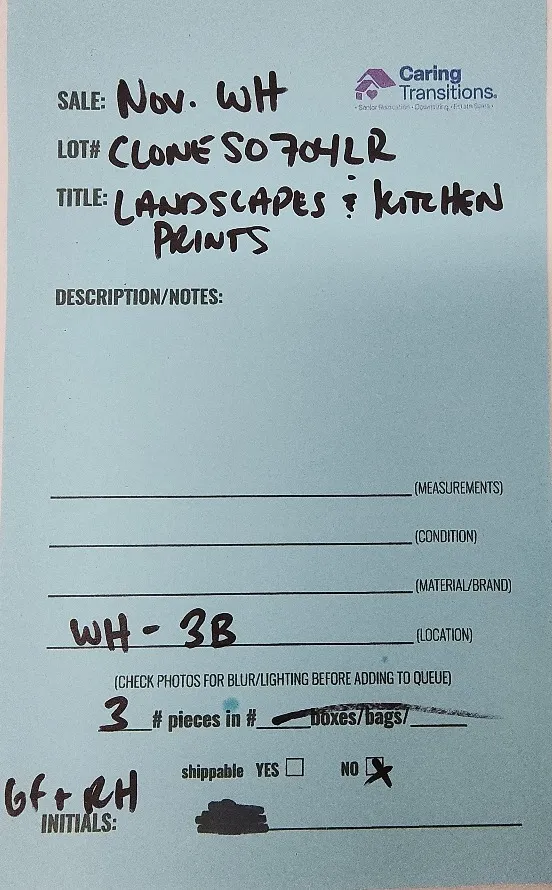 Caring
Transitions.
• Senior Relocation • Downsizing • Estate Sales •
SALE: Nov. WH
LOT# CLONESO704LR
TITLE: LANDSCAPES & KITCHEN
PRINTS
DESCRIPTION/NOTES:
(MEASUREMENTS)
(CONDITION)
(MATERIAL/BRAND)
WH - 3B (LOCATION)
(CHECK PHOTOS FOR BLUR/LIGHTING BEFORE ADDING TO QUEUE)
3 # pieces in # boxes/bags/
shippable YES NO
GF + RH
INITIALS: